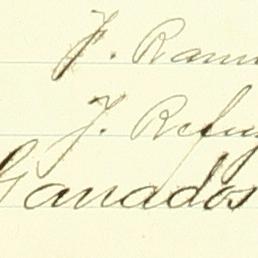 F. Ram
J. Refug
Ganados